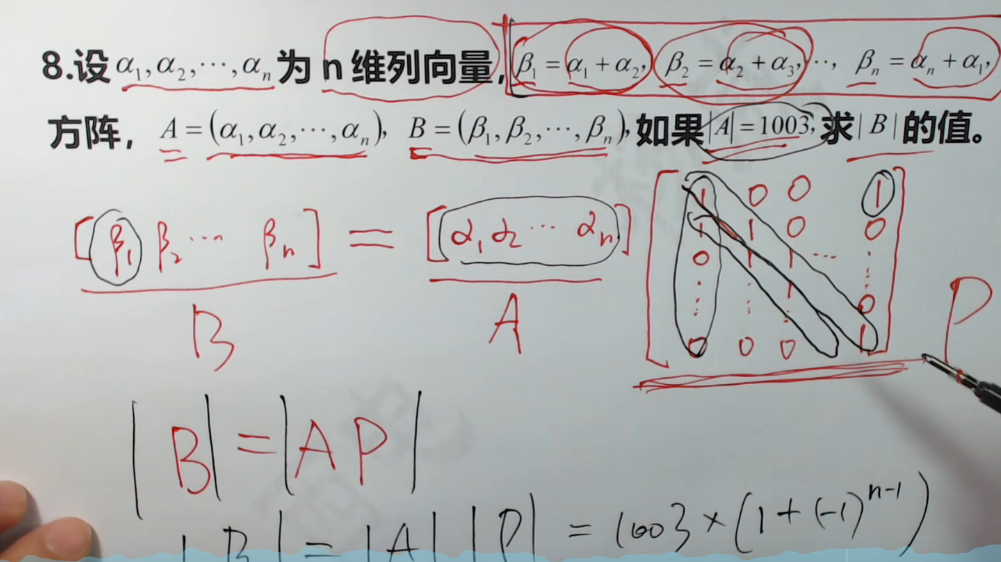 8.设 α₁,α₂,⋯,αₙ 为 n 维列向量, β₁=α₁+α₂, β₂=α₂+α₃, ⋯, βₙ=αₙ+α₁,
方阵, A=(α₁,α₂,⋯,αₙ), B=(β₁,β₂,⋯,βₙ), 如果|A|=1003,求|B|的值。
[β₁ β₂ ⋯ βₙ] = [α₁ α₂ ⋯ αₙ]
B A
1 0 0 1
1 1 0 0
0 1 1 ⋯ ⋮
⋮ ⋮ 1 0
0 0 0 1
P
|B|=|AP|
|B|=|A||P| =1003×(1+(-1)ⁿ⁻¹)